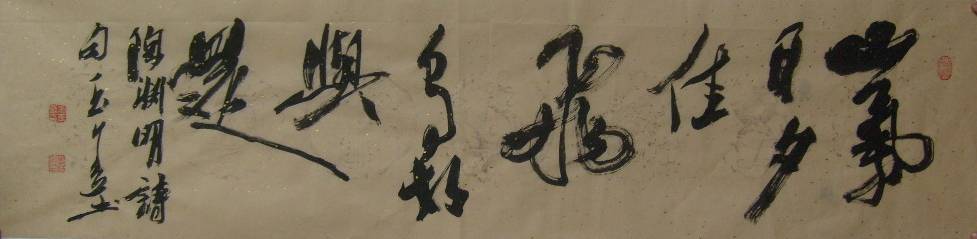 山氣
日夕
佳
飛
鳥相
與
還
陶淵明詩
句